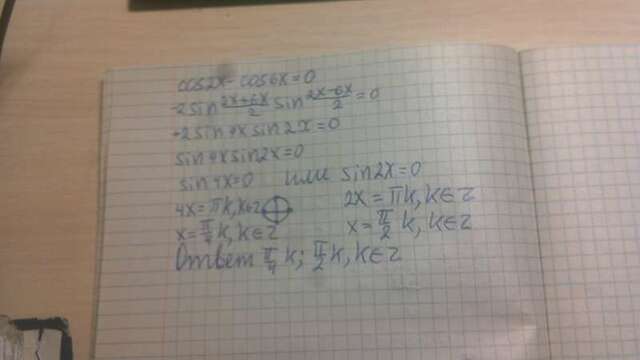 cos2x - cos6x = 0
-2sin (2x+6x)/2 sin (2x-6x)/2 = 0
-2sin4x sin2x = 0
sin4x sin2x = 0
sin4x = 0 или sin2x = 0
4x = πk, k∈Z 2x = πk, k∈Z
x = π/4 k, k∈Z x = π/2 k, k∈Z
Ответ π/4 k; π/2 k, k∈Z